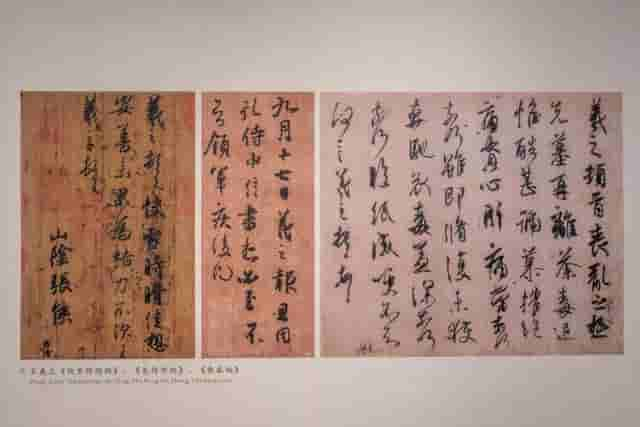 羲之頓首快雪時晴佳想
安善未果為結力不次王
羲之頓首
山陰張侯
九月十七日羲之報且因
孔侍中信書想必至不
知領軍疾後問
羲之頓首喪亂之極
先墓再離荼毒追
惟酷甚號慕摧絕
痛貫心肝痛當奈何
奈何雖即脩復未獲
奔馳哀毒益深奈何
奈何臨紙感哽不知
何言羲之頓首頓首
王羲之《快雪時晴帖》、《孔侍中帖》、《喪亂帖》